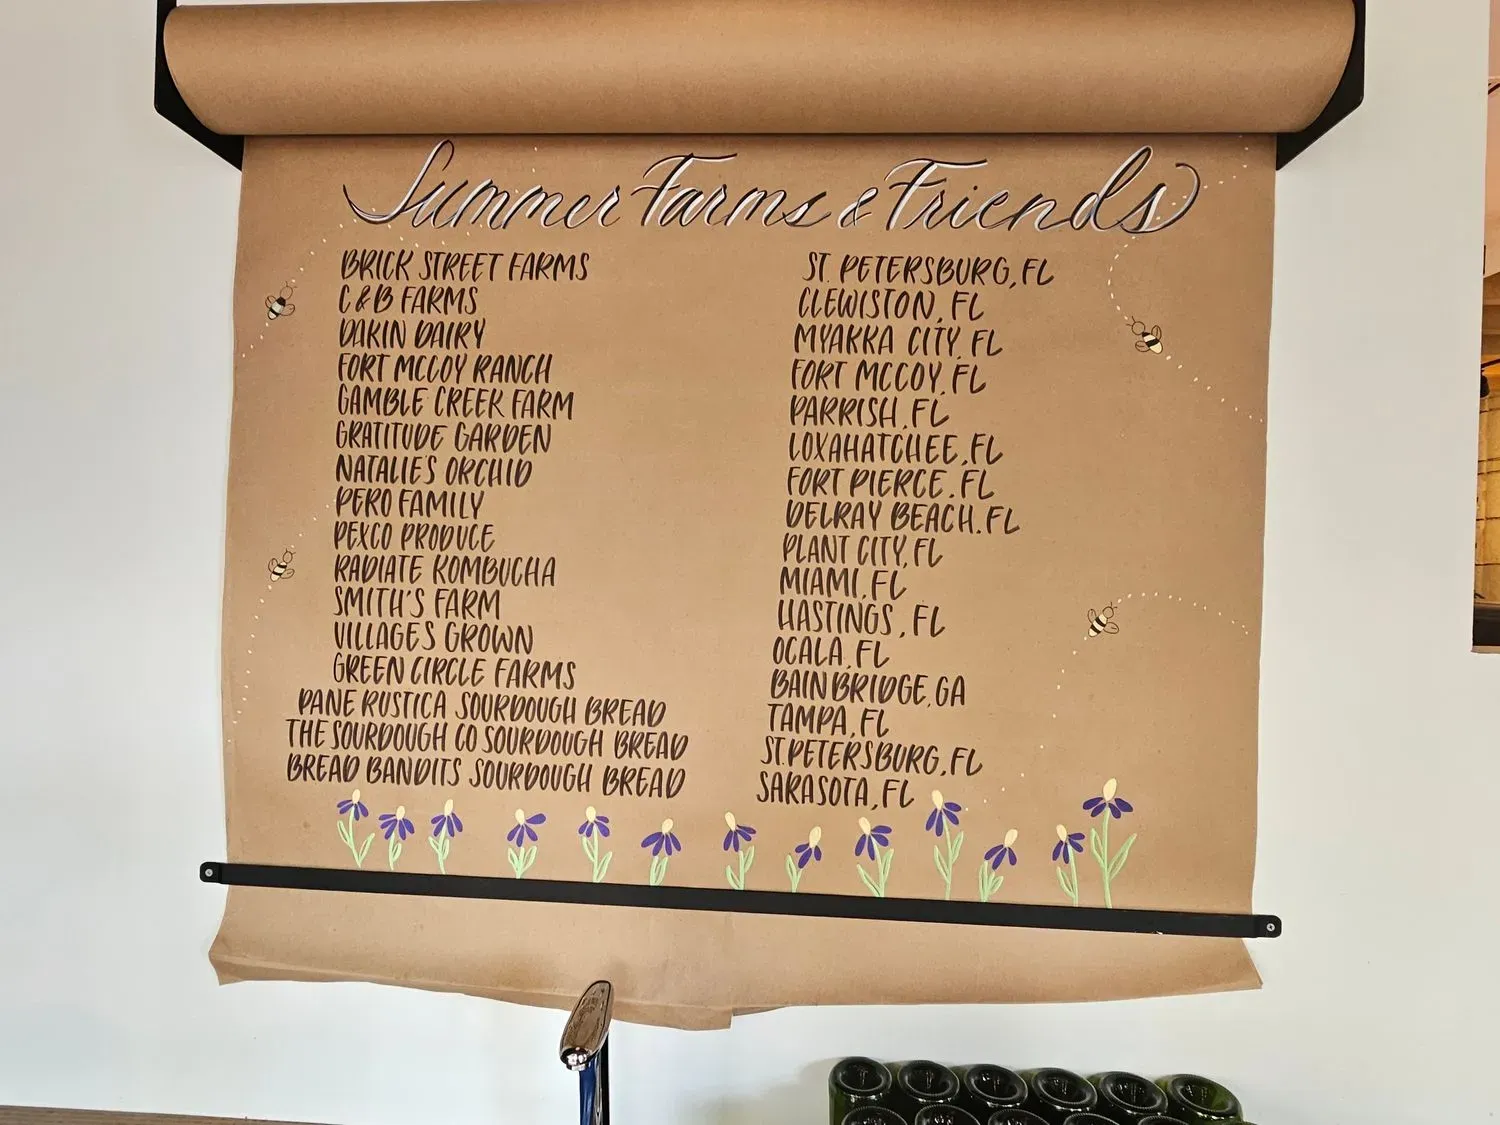 Summer Farms & Friends
BRICK STREET FARMS ST. PETERSBURG, FL
C&B FARMS CLEWISTON, FL
DAKIN DAIRY MYAKKA CITY, FL
FORT MCCOY RANCH FORT MCCOY, FL
GAMBLE CREEK FARM PARRISH, FL
GRATITUDE GARDEN LOXAHATCHEE, FL
NATALIE'S ORCHID FORT PIERCE, FL
PERO FAMILY DELRAY BEACH, FL
PEXCO PRODUCE PLANT CITY, FL
RADIATE KOMBUCHA MIAMI, FL
SMITH'S FARM HASTINGS, FL
VILLAGES GROWN OCALA, FL
GREEN CIRCLE FARMS BAINBRIDGE, GA
PANE RUSTICA SOURDOUGH BREAD TAMPA, FL
THE SOURDOUGH CO SOURDOUGH BREAD ST. PETERSBURG, FL
BREAD BANDITS SOURDOUGH BREAD SARASOTA, FL